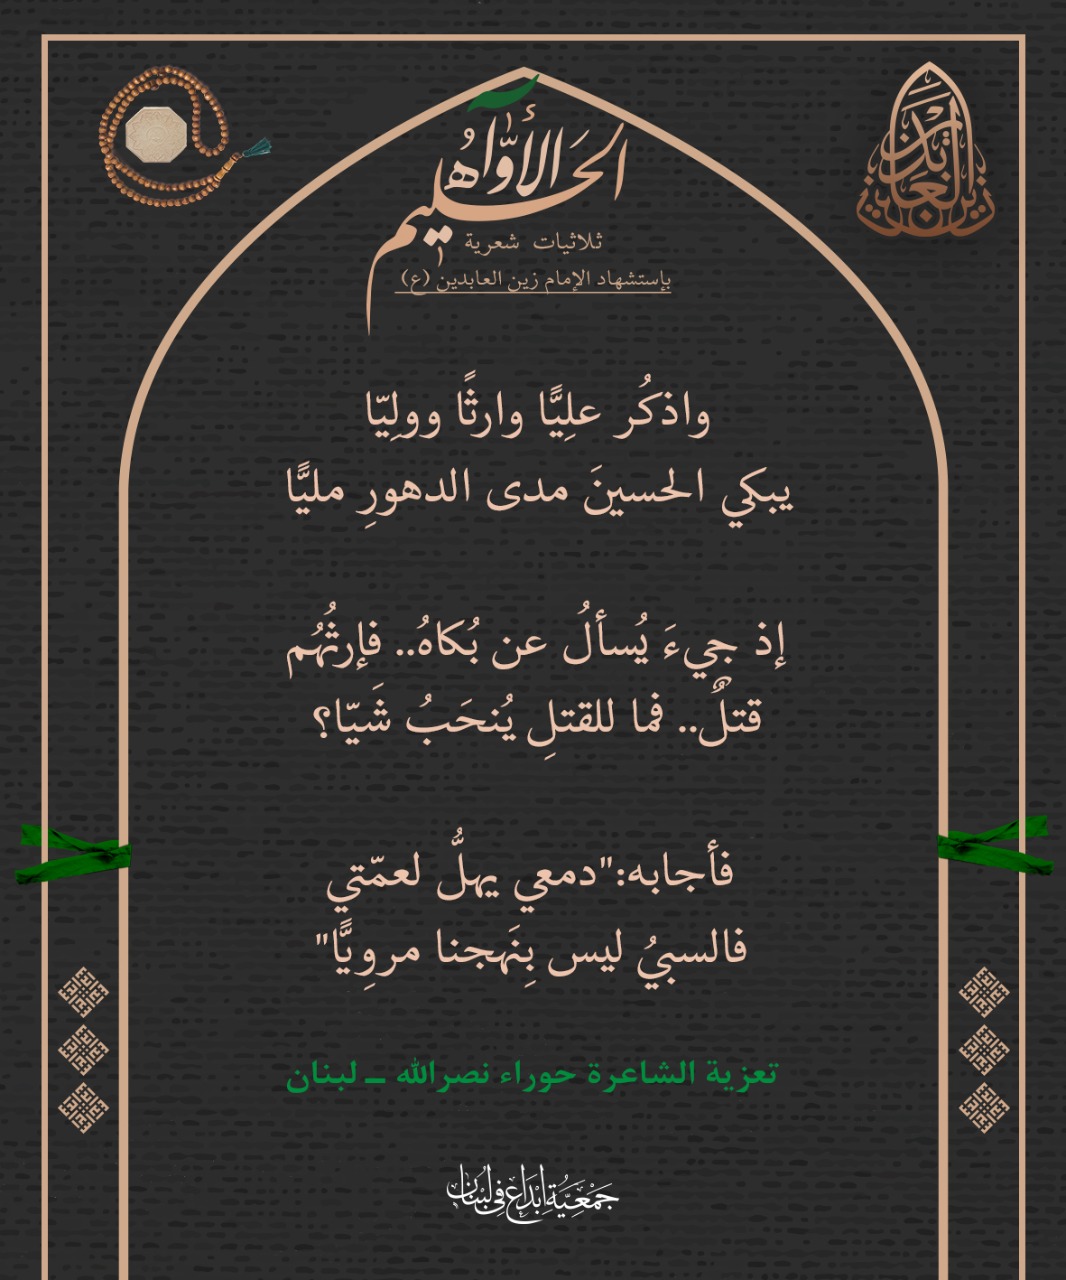 زين العابدين
الأوّاه الحليم
ثلاثيات شعرية
بإستشهاد الإمام زين العابدين (ع)
واذكُر علِيًّا وارثًا وولِيّا
يبكي الحسينَ مدى الدهورِ مليًّا
إذ جيءَ يُسألُ عن بُكاهُ.. فإرثُهُم
قتلٌ.. فما للقتلِ يُنحَبُ شَيّا؟
فأجابه:"دمعي يهلُّ لعمّتي
فالسبيُ ليس بِنَهجنا مروِيًّا"
تعزية الشاعرة حوراء نصرالله ــ لبنان
جَمْعِيَّةُ إبْدَاع فِي لبْنَان